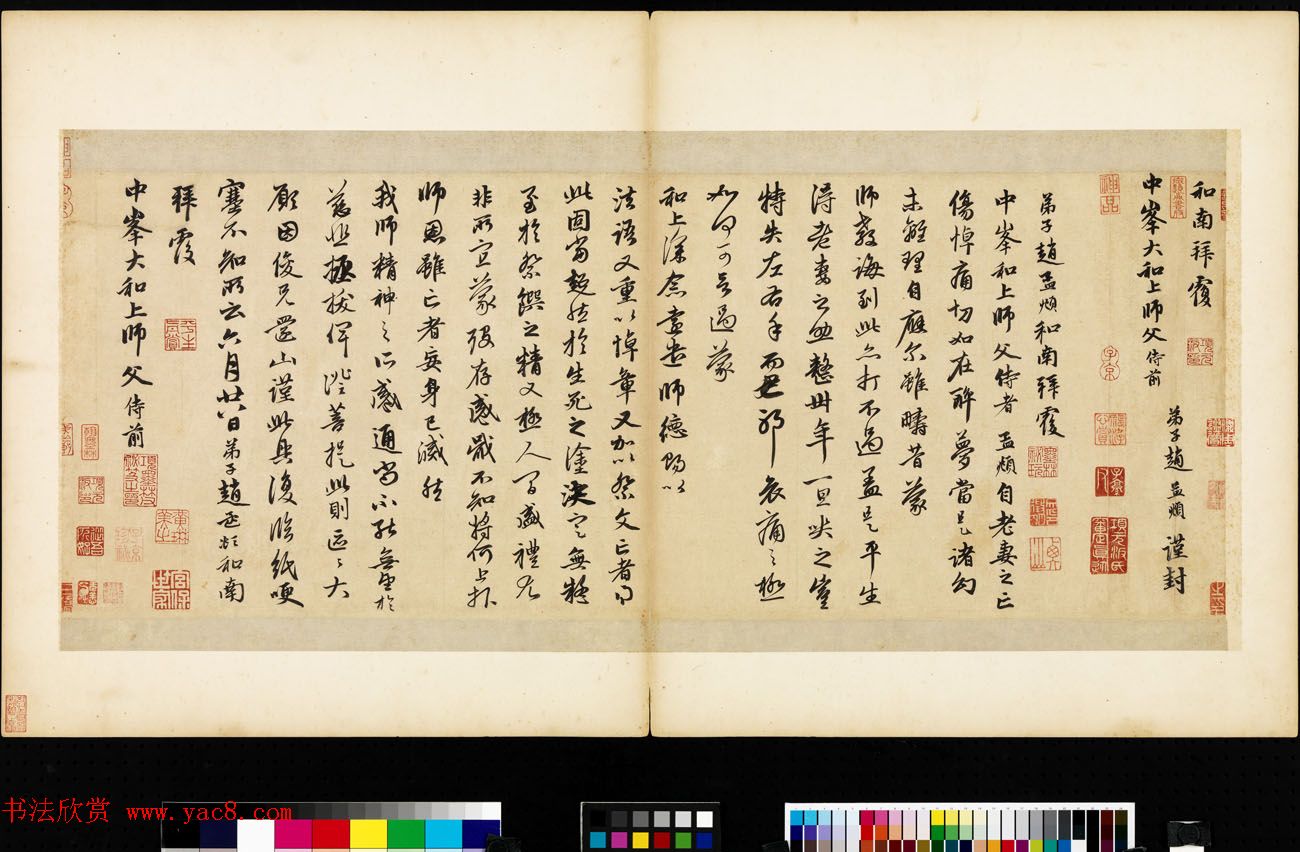 和南拜覆
中峯大和上師父侍前
弟子趙孟頫謹封
神品
子京
弟子趙孟頫和南拜覆
中峯和上師父侍者孟頫自老妻之亡
傷悼痛切如在醉夢當是諸幻
未離理自應尔雖疇昔蒙
師教誨到此亦打不過盖是平生
得老妻之助整卅年一旦哭之豈
特失左右手而已耶哀痛之極
如何可言過蒙
和上深念遠遣師德賜以
法語又重以悼章又加以祭文亡者得
此固當超然於生死之塗決定無疑
至於祭饌之精又極人間盛禮尤
非所宜蒙歿存感戴不知將何上報
師恩雖亡者妄身已滅然
我師精神之所感通尚不能無望於
慈悲拯拔俾證菩提此則區々大
願因俊兄還山謹此具復臨紙哽
塞不知所云六月廿八日弟子趙孟頫和南
拜覆
中峯大和上師父侍前
书法欣赏 www.yac8.com